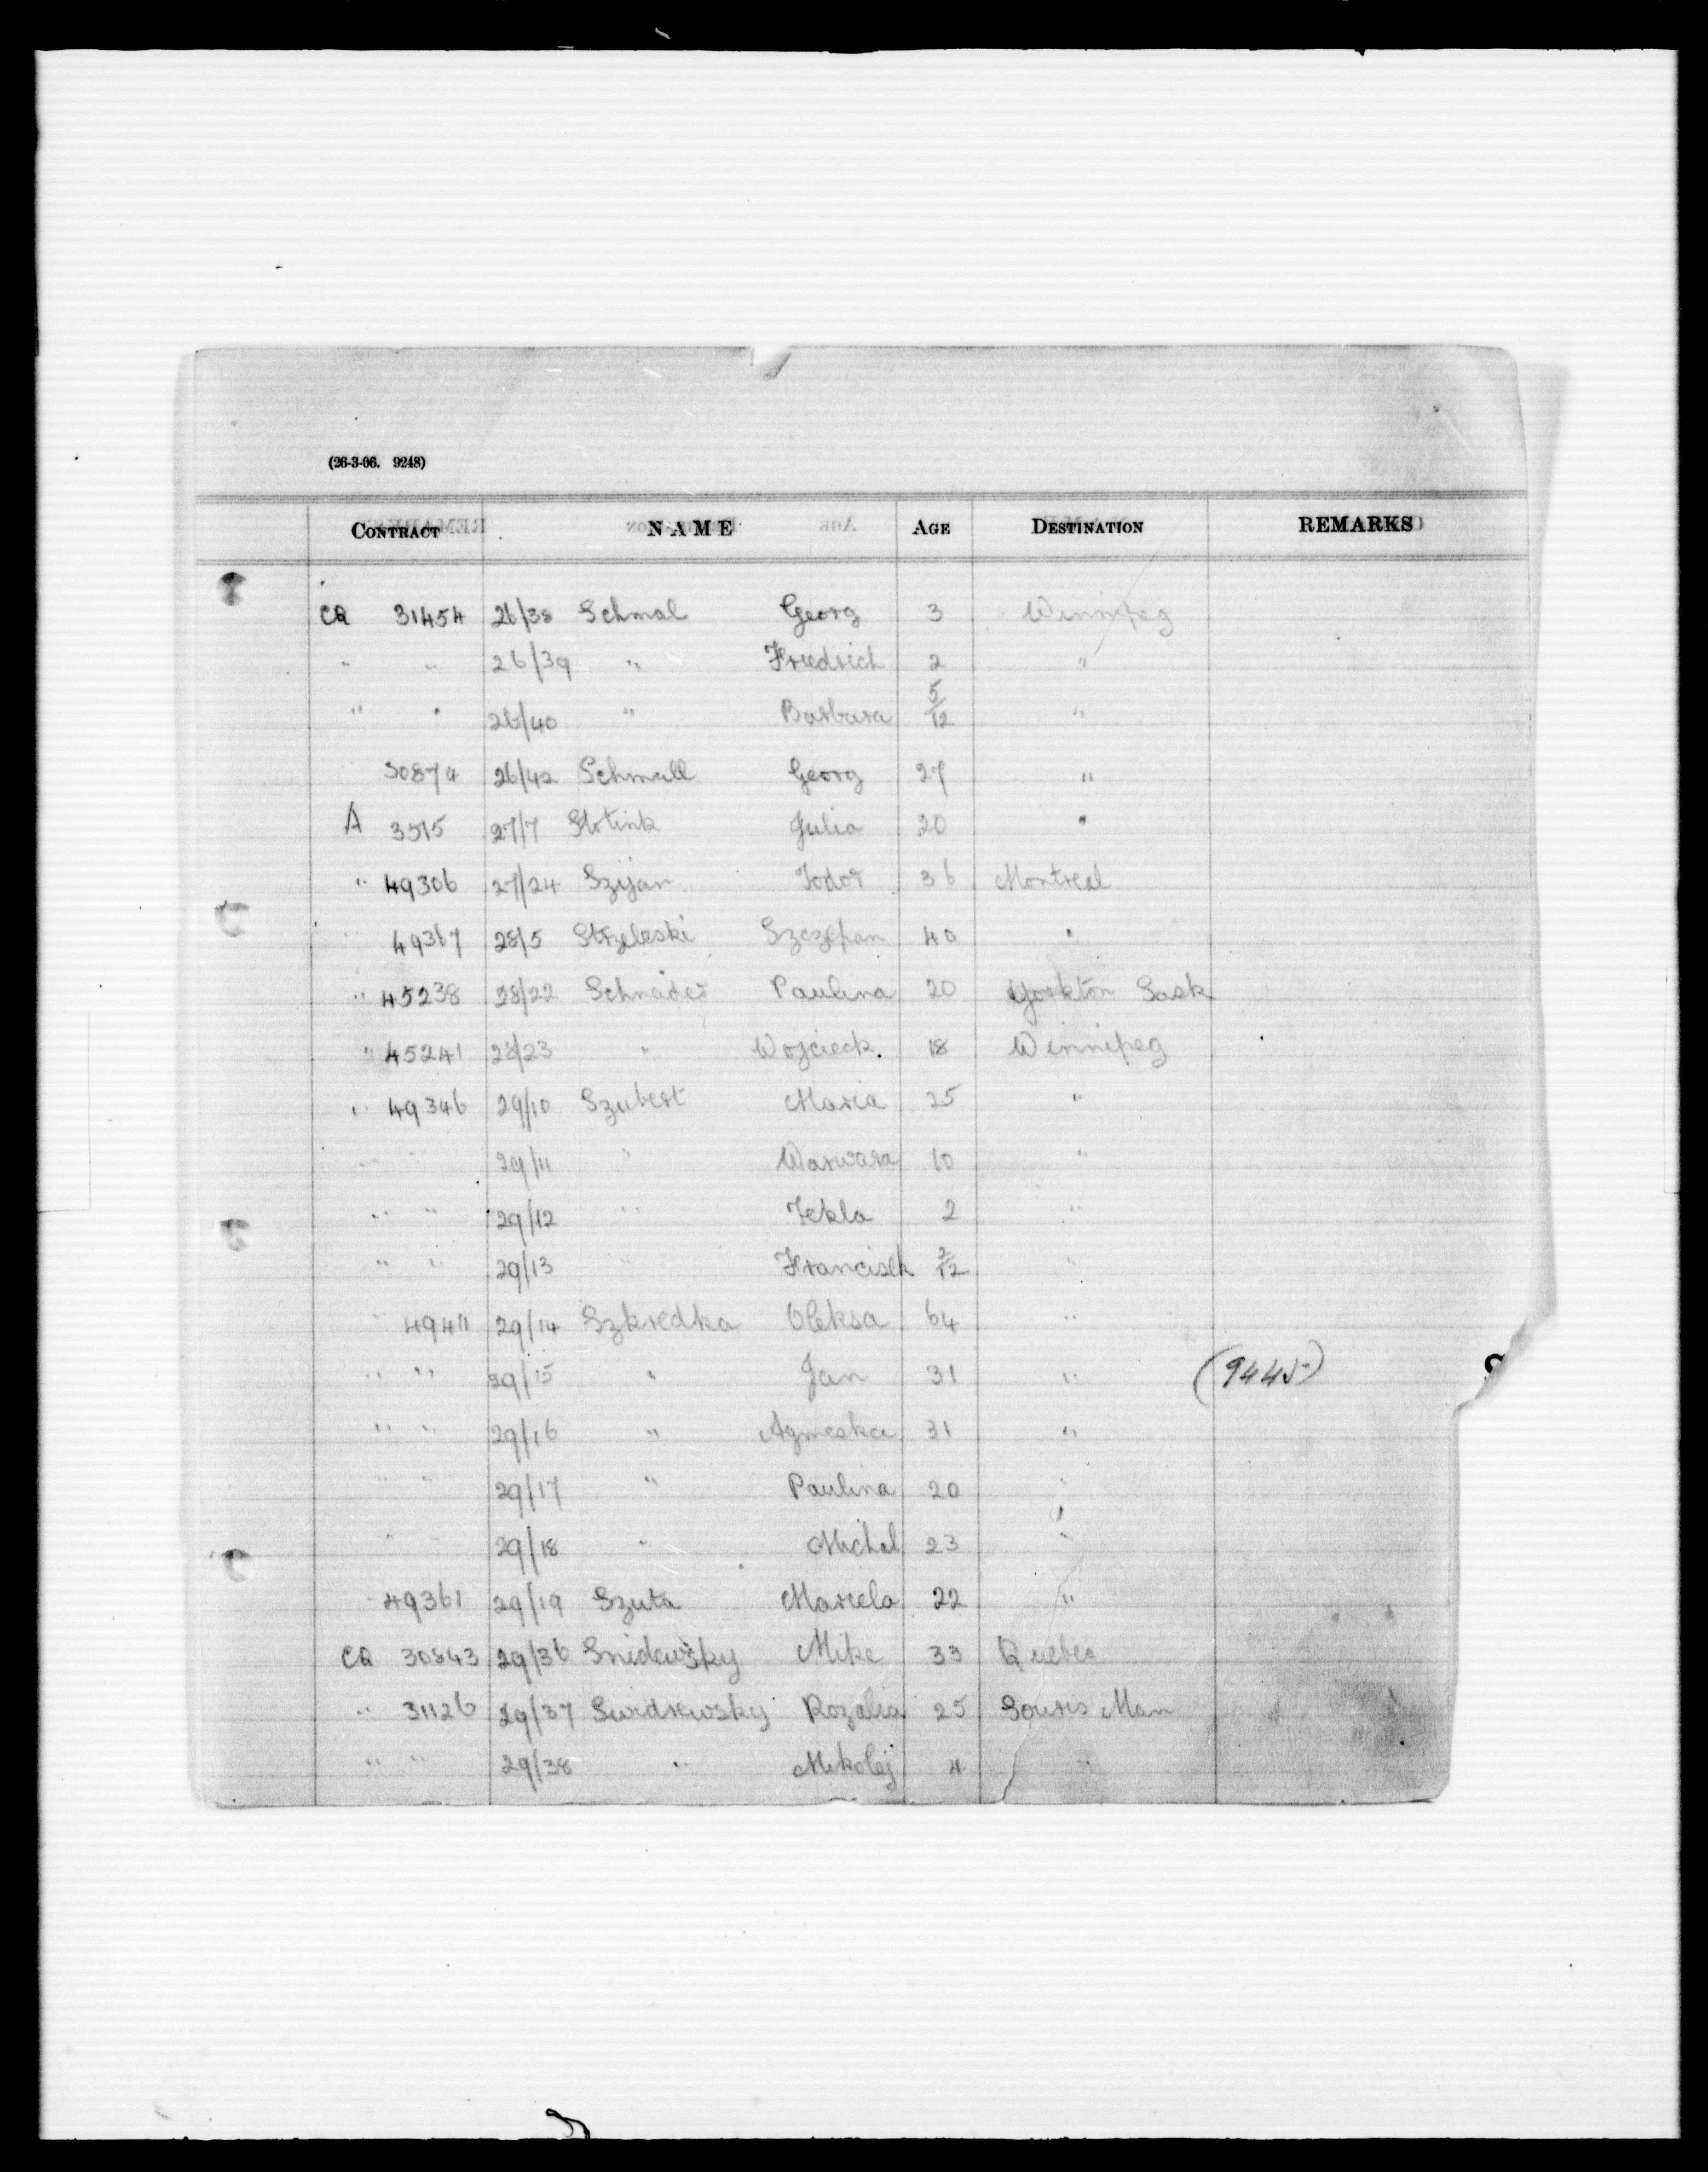 (26-3-06. 9248)
CONTRACT NAME AGE DESTINATION REMARKS
CR 31454 26/38 Schmal Georg 3 Winnipeg
" " 26/39 " Friedrich 2 "
" " 26/40 " Barbara 5/12 "
26/42 Schmall Georg 27 "
A 3515 27/7 Slotink Julia 20 "
" 49306 27/24 Szyjan Todor 36 Montreal
49367 28/5 Strzeleski Szczepan 40 "
" 45238 28/22 Schneider Paulina 20 Yorkton Sask
" 45241 28/23 " Wojcieck. 18 Winnipeg
" 49346 29/10 Szubert Maria 25 "
" " 29/11 " Warwara 10 "
" " 29/12 " Tekla 2 "
" " 29/13 " Francisek 2/12 "
" 49411 29/14 Szkredka Oleksa 64 "
" " 29/15 " Jan 31 " (9445)
" " 29/16 " Agneska 31 "
" " 29/17 " Paulina 20 "
" " 29/18 " Michal 23 "
49361 29/19 Szuta Marcela 22 "
CR 30843 29/36 Snidewsky Mike 33 Quebec
" 31126 29/37 Swidrewsky Rozalia 25 Souris Man
" " 29/38 " Mikolej 4 "